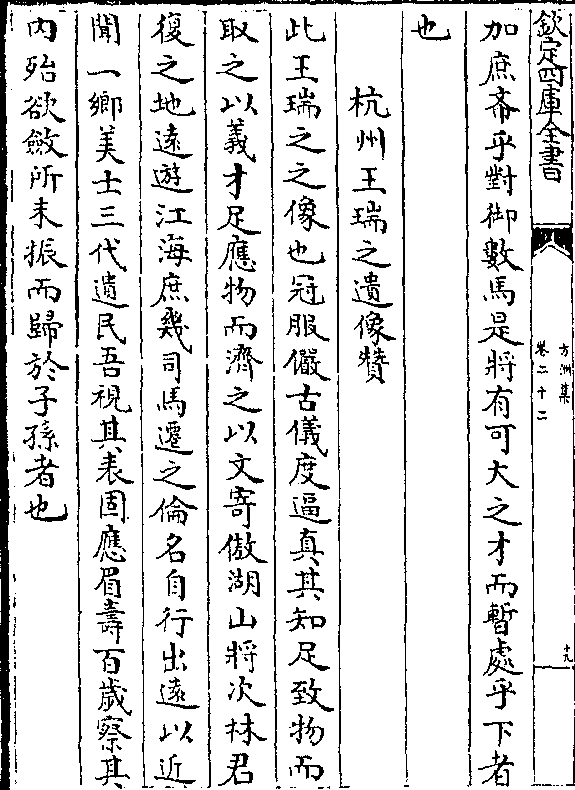 欽定四庫全書
方洲集
卷二十二
十九
加庶斋乎對御數馬是將有可大之才而暫處乎下者
也
杭州王瑞之遺像贊
此王瑞之之像也冠服儼古儀度逼真其知足致物而
取之以義才足應物而濟之以文寄傲湖山將次林君
復之地遠遊江海庶幾司馬遷之倫名自行出遠以近
聞一鄉美士三代遺民吾視其表固應眉壽百歲察其
内殆欲斂所未振而歸於子孫者也